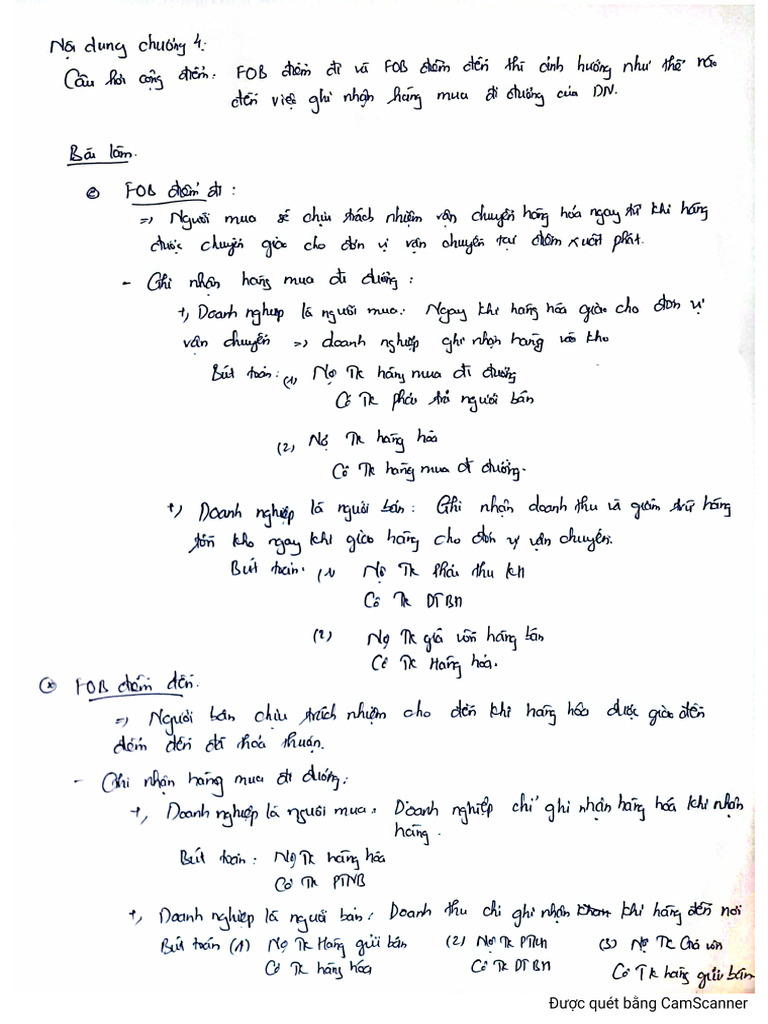 Nội dung chương 4:
Câu hỏi cộng điểm: FOB điểm đi và FOB điểm đến thì ảnh hưởng như thế nào
đến việc ghi nhận hàng mua đi đường của DN.
Bài làm.
⊛ FOB điểm đi:
=> Người mua sẽ chịu trách nhiệm vận chuyển hàng hóa ngay từ khi hàng
được chuyển giao cho đơn vị vận chuyển tại điểm xuất phát.
- Ghi nhận hàng mua đi đường:
+, Doanh nghiệp là người mua: Ngay khi hàng hóa giao cho đơn vị
vận chuyển => doanh nghiệp ghi nhận hàng vào kho
Bút toán: (1) Nợ TK hàng mua đi đường
Có TK phải trả người bán
(2) Nợ TK hàng hóa
Có TK hàng mua đi đường.
+) Doanh nghiệp là người bán: Ghi nhận doanh thu và giảm trừ hàng
tồn kho ngay khi giao hàng cho đơn vị vận chuyển.
Bút toán: (1) Nợ TK Phải thu KH
Có TK DTBH
(2) Nợ TK giá vốn hàng bán
Có TK Hàng hóa.
⊛ FOB điểm đến.
=> Người bán chịu trách nhiệm cho đến khi hàng hóa được giao đến
điểm đến đã thỏa thuận.
- Ghi nhận hàng mua đi đường:
+, Doanh nghiệp là người mua: Doanh nghiệp chỉ ghi nhận hàng hóa khi nhận
hàng.
Bút toán: Nợ TK hàng hóa
Có TK PTNB
+, Doanh nghiệp là người bán: Doanh thu chỉ ghi nhận khi hàng đến nơi
Bút toán (1) Nợ TK Hàng gửi bán (2) Nợ TK PTKH (3) Nợ TK Giá vốn
Có TK hàng hóa Có TK DTBH Có TK hàng gửi bán
Được quét bằng CamScanner